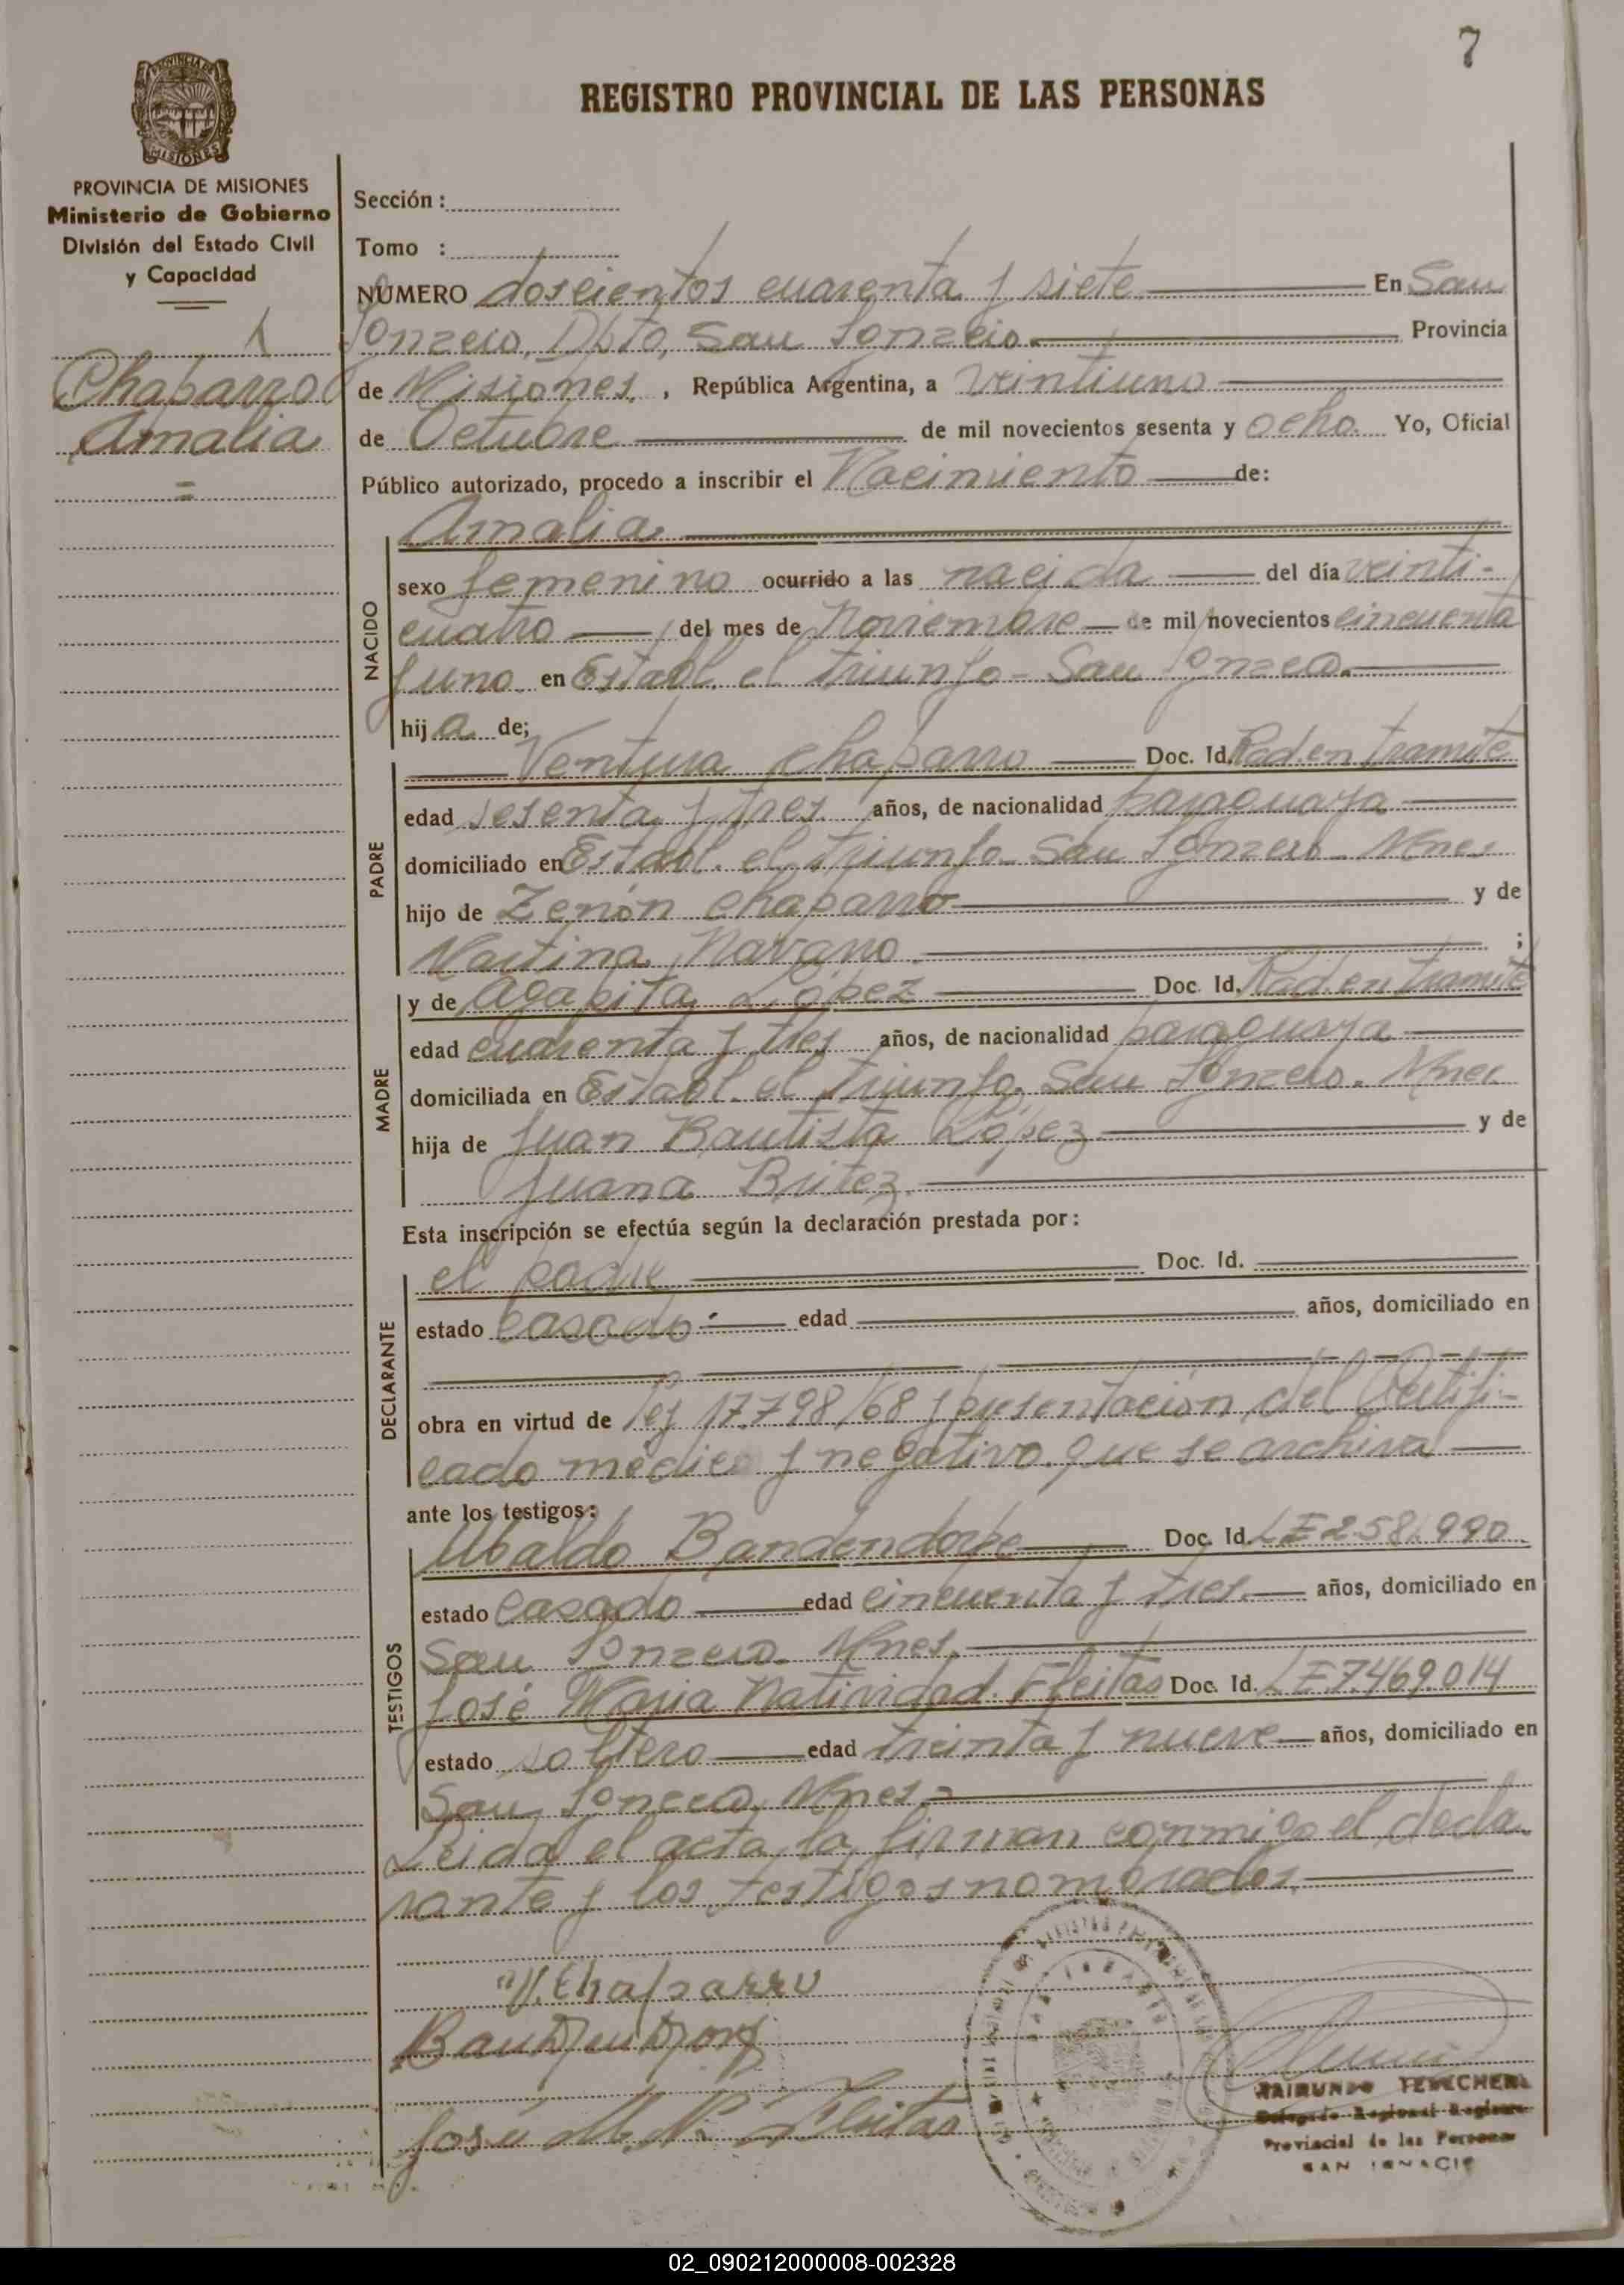 7
REGISTRO PROVINCIAL DE LAS PERSONAS
PROVINCIA DE MISIONES
Ministerio de Gobierno
División del Estado Civil
y Capacidad
Chaparro
Amalia
Sección :
Tomo :
NÚMERO doscientos cuarenta y siete En San
Ignacio, Dpto, San Ignacio. Provincia
de Misiones. , República Argentina, a veintiuno
de Octubre de mil novecientos sesenta y ocho. Yo, Oficial
Público autorizado, procedo a inscribir el Nacimiento de:
NACIDO
Amalia
sexo femenino ocurrido a las nacida del día veinti-
cuatro del mes de Noviembre de mil novecientos cincuenta
y uno en Establ. el triunfo - San Ignacio.
hija de;
PADRE
Ventura Chaparro Doc. Id. Rad. en tramite
edad sesenta y tres años, de nacionalidad paraguaya
domiciliado en Establ. el triunfo - San Ignacio - Mnes
hijo de Zenón Chaparro y de
Martina Navarro ;
MADRE
y de Agapita López Doc. Id. Rad. en tramite
edad cuarenta y tres años, de nacionalidad paraguaya
domiciliada en Establ. el triunfo, San Ignacio. Mnes
hija de Juan Bautista López y de
Juana Britez.
Esta inscripción se efectúa según la declaración prestada por:
DECLARANTE
el padre Doc. Id.
estado casado edad años, domiciliado en
obra en virtud de ley 17.798/68 y presentación del Certifi-
cado médico y negativo que se archiva
ante los testigos:
TESTIGOS
Ubaldo Bandendorpe Doc. Id. LE 2.581.990
estado casado edad cincuenta y tres. años, domiciliado en
San Ignacio. Mnes.
José Maria Natividad Fleitas Doc. Id. LE 7.469.014
estado soltero edad treinta y nueve años, domiciliado en
San Ignacio, Mnes.
Leida el acta, la firman conmigo el decla-
rante y los testigos nombrados.
V. Chaparro
José M. N. Fleitas
RAIMUNDO
Delegado Regional Registro
Provincial de las Personas
SAN IGNACIO
02_090212000008-002328